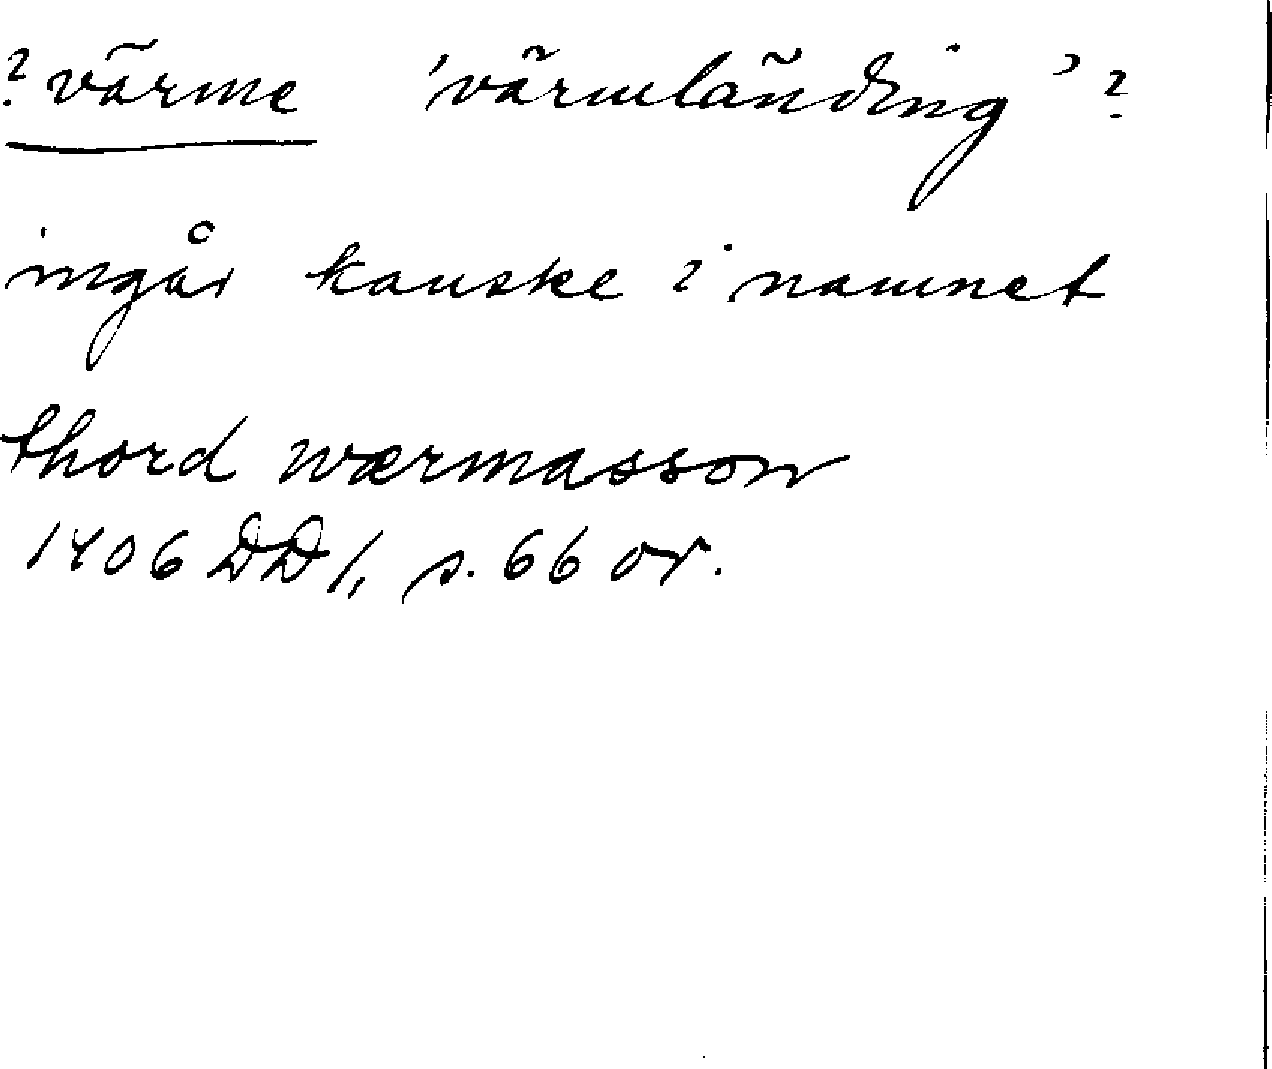 ? värme 'värmländing'?
ingår kanske i namnet
thord wærmasson
1406 DD 1, s. 66 or.